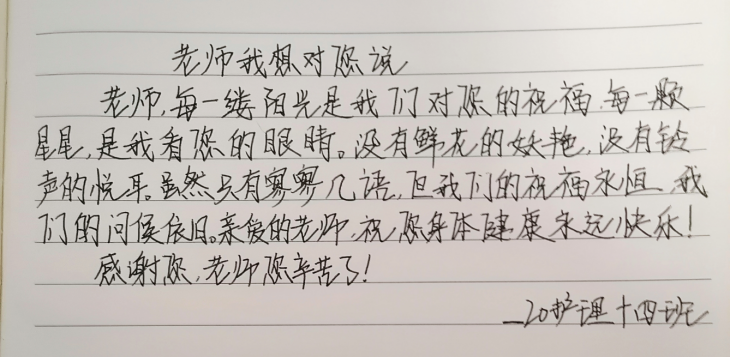 老师我想对您说
老师,每一缕阳光是我们对您的祝福,每一颗
星星,是我看您的眼睛。没有鲜花的妖艳,没有铃
声的悦耳。虽然只有寥寥几语,但我们的祝福永恒,我
们的问候依旧。亲爱的老师,祝您身体健康永远快乐!
感谢您,老师您辛苦了!
—20护理十四班